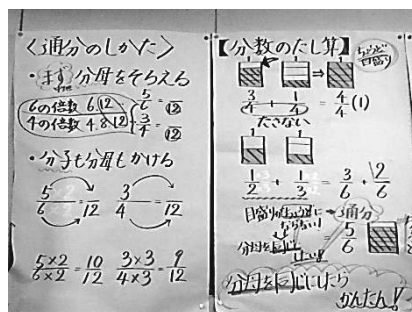 〈通分のしかた〉
・まず分母をそろえる
6の倍数 6.⑫ 5/6=/⑫
4の倍数 4.8.⑫ 3/4=/⑫
・分子も分母もかける
5/6 = /12 3/4 = /12
5×2/6×2 = 10/12 3×3/4×3 = 9/12
【分数のたし算】
ちょうど
目盛り
3/4 + 1/4 = 4/4 (1)
たさない
1/2 + 1/3 = 3/6 + 2/6
通分
分母を同じ
5/6
分母を同じにしたら
かんたん!